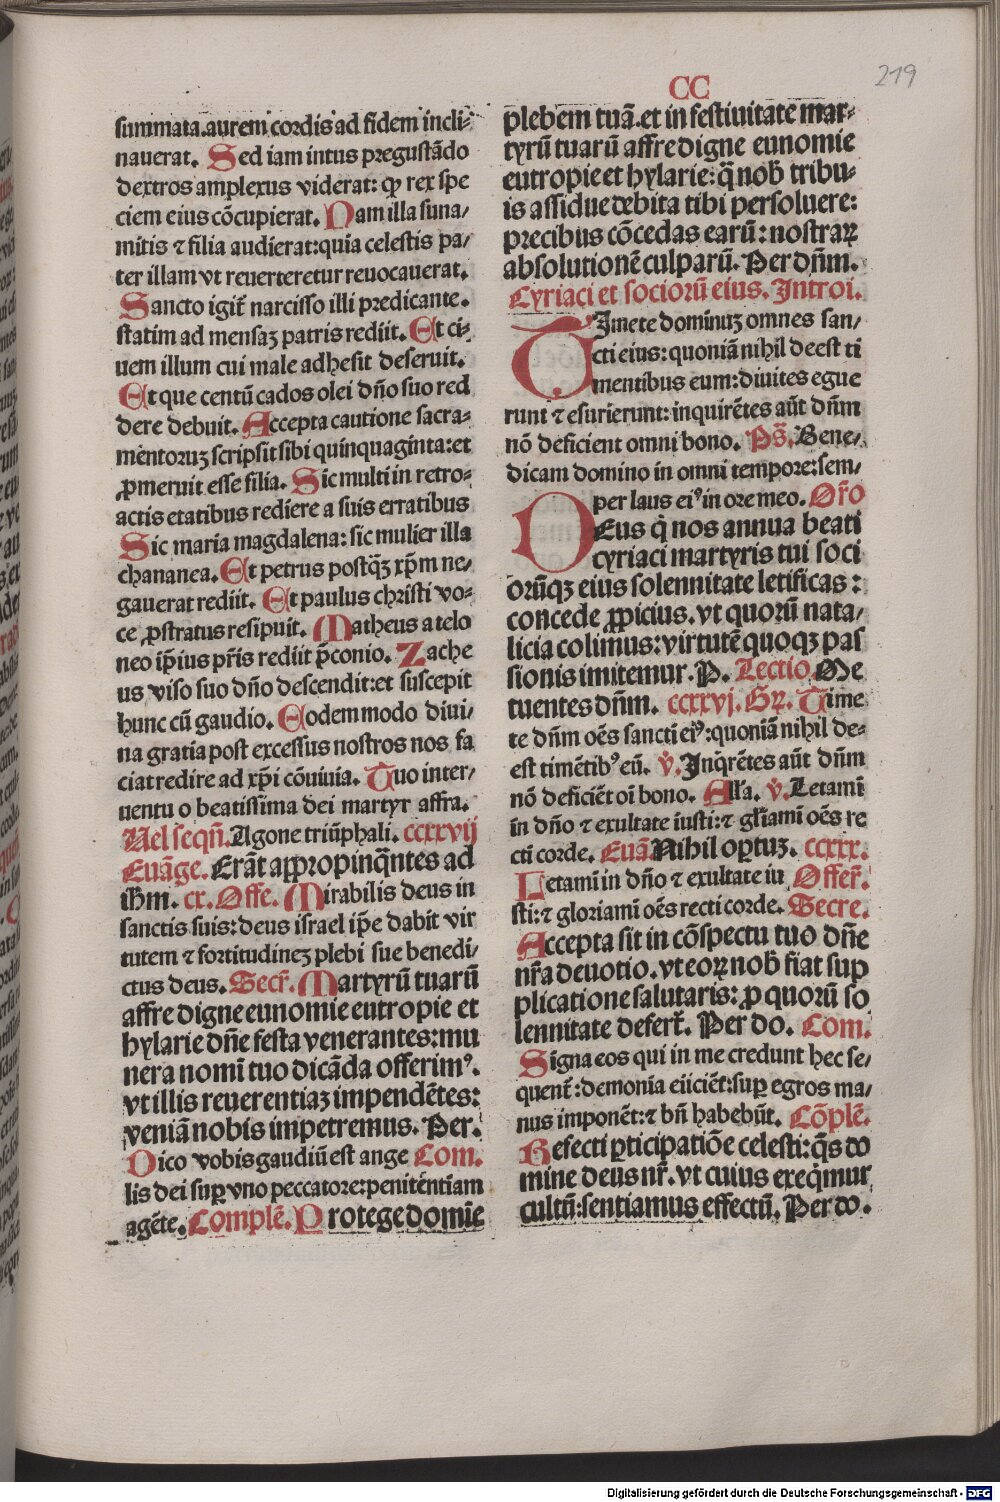 219
CC
summata.aurem cordis ad fidem incli⸗
nauerat. Sed iam intus pregustādo
dextros amplexus viderat: ꝙ rex spe
ciem eius cōcupierat. Nam illa suna/
mitis ⁊ filia audierat:quia celestis pa/
ter illam vt reuerteretur reuocauerat.
Sancto igit̄ narcisso illi predicante.
statim ad mensaꝫ patris rediit. Et ci⸗
uem illum cui male adhesit deseruit.
Et que centū cados olei dn̄o suo red
dere debuit. Accepta cautione sacra⸗
mentoruꝫ scripsit sibi quinquaginta:et
ꝓmeruit esse filia. Sic multi in retro⸗
actis etatibus rediere a suis erratibus
Sic maria magdalena: sic mulier illa
chananea. Et petrus postq̄ꝫ xp̄m ne⸗
gauerat rediit. Et paulus christi vo⸗
ce ꝓstratus resipuit. Matheus a telo
neo ip̄ius pr̄is rediit p̄conio. Zache
us viso suo dn̄o descendit:et suscepit
hunc cū gaudio. Eodem modo diui/
na gratia post excessus nostros nos fa
ciat redire ad xp̄i cōuiuia. Tuo inter/
uentu o beatissima dei martyr affra.
Uel seqn̄. Agone triūphali. ccxxvij
Euāge. Erāt appropinq̄ntes ad
ih̄m. cx. Offe. Mirabilis deus in
sanctis suis: deus israel ip̄e dabit vir
tutem ⁊ fortitudineꝫ plebi sue benedi/
ctus deus. Secr̄. Martyrū tuarū
affre digne eunomie eutropie et
hylarie dn̄e festa venerantes:mu
nera nomī tuo dicāda offerimꝰ.
vt illis reuerentiaꝫ impendētes:
veniā nobis impetremus. Per.
Dico vobis gaudiū est ange Com.
lis dei suꝑ vno peccatore:penitentiam
agēte. Complē. Protege domīe
plebem tuā.et in festiuitate mar⸗
tyrū tuarū affre digne eunomie
eutropie et hylarie: q̄ nob̄ tribu⸗
is assidue debita tibi persoluere:
precibus cōcedas earū: nostraꝝ
absolutionē culparū. Per dn̄m.
Cyriaci et sociorū eius. Introi.
Timete dominuꝫ omnes san/
cti eius: quoniā nihil deest ti
mentibus eum: diuites egue
runt ⁊ esurierunt: inquirētes aūt dn̄m
nō deficient omni bono. Ps̄. Bene/
dicam domino in omni tempore: sem/
per laus eiꝰ in ore meo. Or̄o
DEus q̄ nos annua beati
cyriaci martyris tui soci
orūqꝫ eius solennitate letificas:
concede ꝓpicius. vt quorū nata/
licia colimus: virtutē quoqꝫ pas
sionis imitemur. P. Lectio Me
tuentes dn̄m. ccxxvj. Gꝝ. Time
te dn̄m oēs sancti eiꝰ: quoniā nihil de⸗
est timētibꝰ eū. v̄. Inqrētes aūt dn̄m
nō deficiēt oī bono. Alla. v̄. Letamī
in dn̄o ⁊ exultate iusti:⁊ gl̄iamī oēs re
cti corde. Euā Nihil optuꝫ. ccxxx.
Letamī in dn̄o ⁊ exultate iu Offer̄.
sti: ⁊ gloriamī oēs recti corde. Secre.
Accepta sit in cōspectu tuo dn̄e
nr̄a deuotio. vt eoꝝ nob̄ fiat sup
plicatione salutaris: ꝓ quorū so
lennitate defert̄. Per do. Com.
Signa eos qui in me credunt hec se/
quent̄: demonia eiiciēt: suꝑ egros ma/
nus imponēt: ⁊ bn̄ habebūt. Cōplē.
Refecti ꝑticipatiōe celesti: q̄s do
mine deus nr̄. vt cuius exeq̄mur
cultū: sentiamus effectū. Per do.
Digitalisierung gefördert durch die Deutsche Forschungsgemeinschaft - DFG